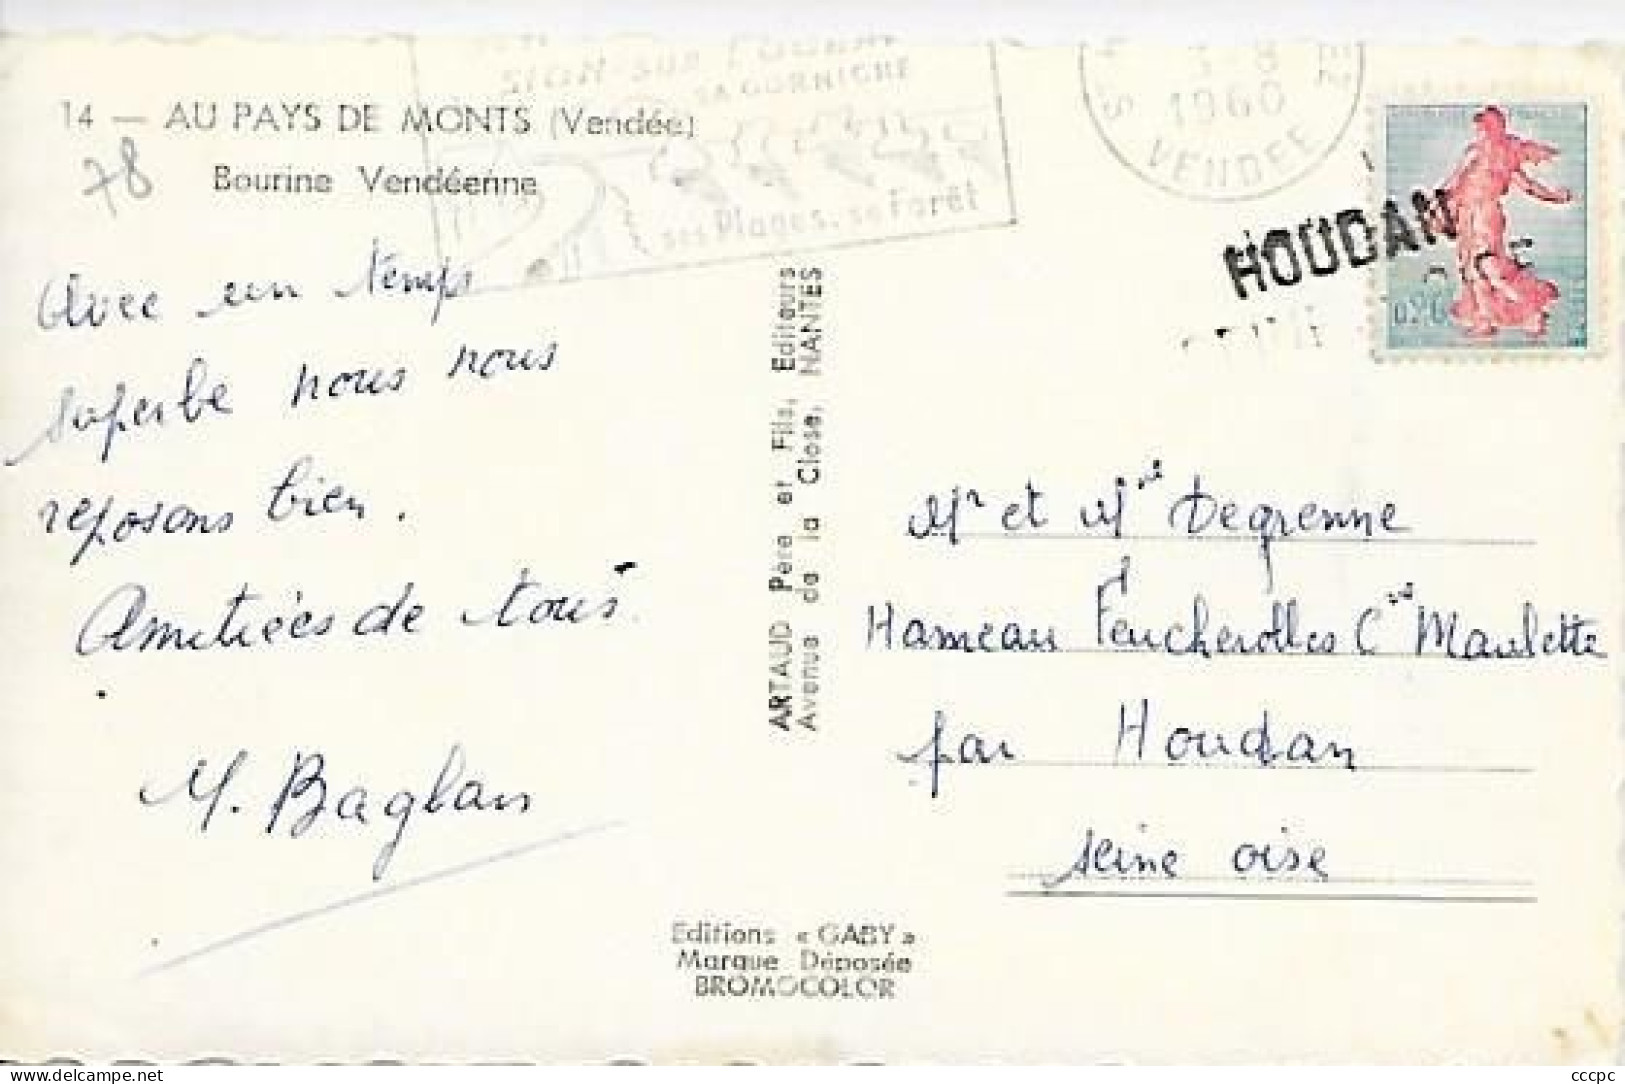 14 — AU PAYS DE MONTS (Vendée)
78
Bourine Vendéenne
Avec un temps
superbe nous nous
reposons bien.
Amitiées de tous.
M. Baglan
SION sur
SA CORNICHE
ses Plages, sa Forêt
1960
VENDEE
HOUDAN
0,20
ARTAUD Père et Fils, Editeurs
Avenue de la Close, NANTES
Mr et Mme Degrenne
Hameau Feucherolles Cne Maulette
par Houdan
seine oise
Editions « GABY »
Marque Déposée
BROMOCOLOR
cccpc